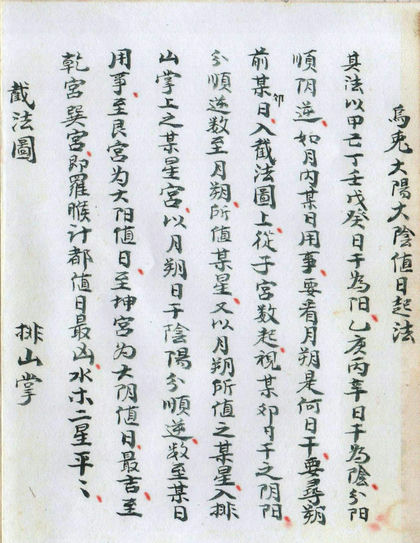 烏兎大陽大陰值日起法
其法以甲己丁壬戊癸日干為陽乙庚丙辛日干為陰分陽
順阴逆如月内某日用事要看月朔是何日干要尋朔
前某卯日入截法圖上從子宮数起視某卯日干之阴阳
分順逆数至月朔所值某星又以月朔所值之某星入排
山掌上之某星宮以月朔日干陰陽分順逆数至某日
用事至艮宮为大阳值日至坤宮为大阴值日最吉至
乾宮巽宮即羅睺計都值日最凶水木二星平〻
截法圖 排山掌